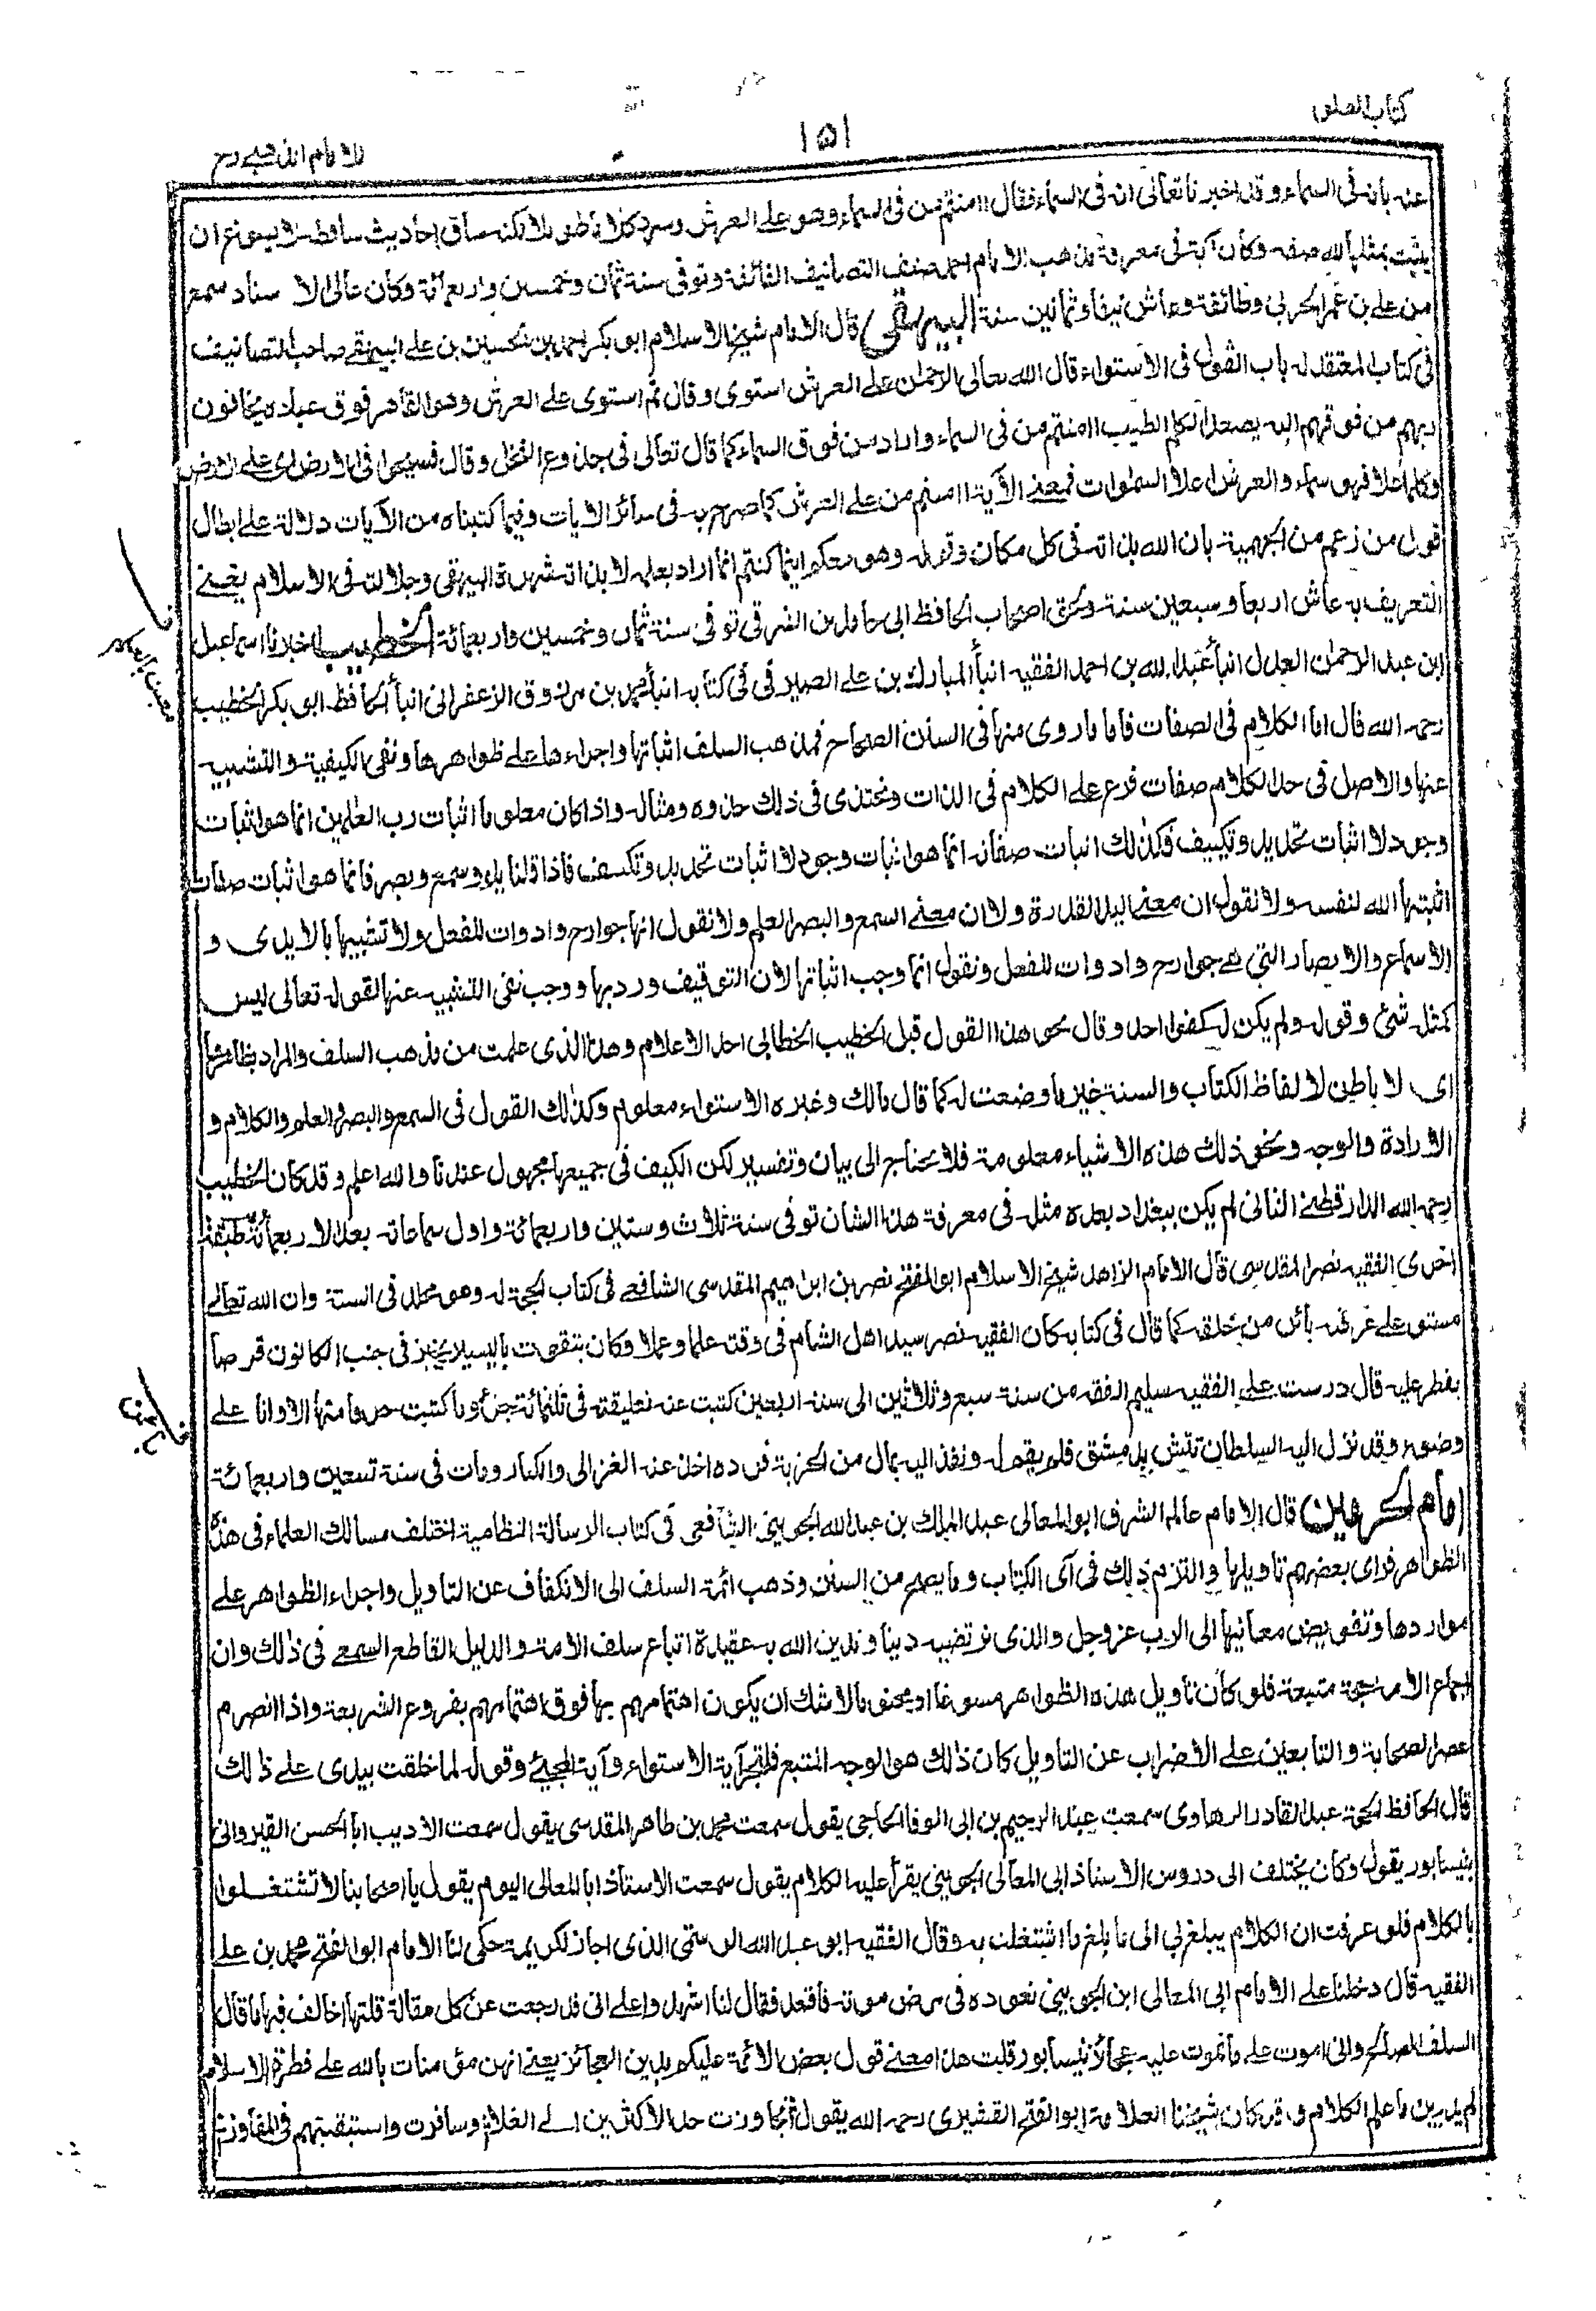 كتاب العلو
١٥١
للامام الذهبي رح
عنه بانه فى السماء وقد اخبرنا تعالى انه فى السماء فقال اامنتم من فى السماء وهو على العرش وسرد كلاما طويلا لكنه ساق احاديث ساقطة لا يسوغ ان
يثبت بمثلها لله صفة وكان آية فى معرفة مذهب الامام احمد صنف التصانيف الفائقة وتوفى سنة ثمان وخمسين واربعمائة وكان عالى الاسناد سمع
من على بن عمر الحربي وطائفة وعاش نيفا وثمانين سنة البيهقى قال الامام شيخ الاسلام ابو بكر احمد بن الحسين بن على البيهقي صاحب التصانيف
فى كتاب المعتقد له باب القول فى الاستواء قال الله تعالى الرحمن على العرش استوى وقال ثم استوى على العرش وهو القاهر فوق عباده يخافون
ربهم من فوقهم اليه يصعد الكلم الطيب اامنتم من فى السماء واراد من فوق السماء كما قال تعالى فى جذوع النخل وقال فسيحوا فى الارض اى على الارض
وكلما علا فهو سماء والعرش اعلا السموات فمعنى الآية اامنتم من على العرش كما صرح به فى سائر الايات وفيما كتبناه من الآيات دلالة على ابطال
قول من زعم من الجهمية بان الله بذاته فى كل مكان وقوله وهو معكم اينما كنتم انما اراد بعلمه لا بذاته شهرة البيهقى وجلالته فى الاسلام يغنى
التعريف به عاش اربعا وسبعين سنة اصحاب الحافظ ابى حامد بن الشرقى توفى سنة ثمان وخمسين واربعمائة الخطيب اخبرنا اسماعيل
ابن عبد الرحمن العدل انبأ عبد الله بن احمد الفقيه انبأ المبارك بن على الصيرفى فى كتابه انبأ محمد بن مرزوق الزعفرانى انبأ الحافظ ابو بكر الخطيب
رحمه الله قال اما الكلام فى الصفات فاما ما روى منها فى السنن الصحاح فمذهب السلف اثباتها واجراءها على ظواهرها ونفى الكيفية والتشبيه
عنها والاصل فى هذا الكلام صفات فرع على الكلام فى الذات ونحتذى فى ذلك حذوه ومثاله واذا كان معلوما اثبات رب العلمين انما هو اثبات
وجود لا اثبات تحديد وتكييف فكذلك اثبات صفاته انما هو اثبات وجود لا اثبات تحديد وتكييف فاذا قلنا يد وسمع وبصر فانما هو اثبات صفات
اثبتها الله لنفسه ولا نقول ان معنى اليد القدرة ولا ان معنى السمع والبصر العلم ولا نقول انها جوارح وادوات للفعل ولا تشبيهها بالايدى و
الاسماع والابصار التى هى جوارح وادوات للفعل ونقول انما وجب اثباتها لان التوقيف ورد بها ووجب نفى التشبيه عنها لقوله تعالى ليس
كمثله شئ وقوله ولم يكن له كفوا احد وقال نحو هذا القول قبل الخطيب الخطابى احد الاعلام وهذا الذى علمت من مذهب السلف والمراد بظاهرها
اى لا باطن لالفاظ الكتاب والسنة غير ما وضعت له كما قال مالك وغيره الاستواء معلوم وكذلك القول فى السمع والبصر والعلم والكلام و
الارادة والوجه ونحو ذلك هذه الاشياء معلومة فلا يحتاج الى بيان وتفسير لكن الكيف فى جميعها مجهول عندنا والله اعلم وقد كان الخطيب
رحمه الله الدارقطنى الثانى لم يكن ببغداد بعده مثله فى معرفة هذا الشان توفى سنة ثلاث وستين واربعمائة واول سماعاته بعد الاربعمائة طبقة
اخرى الفقيه نصر المقدسى قال الامام الزاهد شيخ الاسلام ابو الفتح نصر بن ابراهيم المقدسى الشافعى فى كتاب الحجة له وهو مجلد فى السنة وان الله تعالى
مستو على عرشه بائن من خلقه كما قال فى كتابه كان الفقيه نصر سيد اهل الشام فى وقته علما وعملا وكان يتقوت باليسير يخبز فى جنب الكانون قرصا
يفطر عليه قال درست على الفقيه سليم الفقه من سنة سبع وثلاثين الى سنة اربعين كتبت عنه تعليقته فى ثلثمائة جزء وما كتبت حرفا منها الا وانا على
وضوء وقد نزل اليه السلطان تتش بدمشق فلم يقم له ونفذ اليه بمال من الجزية فرده اخذ عنه الغزالى والكبار ومات فى سنة تسعين واربعمائة
امام الحرمين قال الامام عالم الشرق ابو المعالى عبد الملك بن عبد الله الجوينى الشافعى فى كتاب الرسالة النظامية اختلف مسالك العلماء فى هذه
الظواهر فراى بعضهم تاويلها والتزم ذلك فى آى الكتاب وما يصح من السنن وذهب ائمة السلف الى الانكفاف عن التاويل واجراء الظواهر على
مواردها وتفويض معانيها الى الرب عز وجل والذى نرتضيه دينا وندين الله به عقيدة اتباع سلف الامة والدليل القاطع السمعى فى ذلك وان
اجماع الامة حجة متبعة فلو كان تاويل هذه الظواهر مسوغا او محتوما لا شك ان يكون اهتمامهم بها فوق اهتمامهم بفروع الشريعة واذا انصرم
عصر الصحابة والتابعين على الاضراب عن التاويل كان ذلك هو الوجه المتبع فلتجر آية الاستواء وآية المجيئ وقوله لما خلقت بيدى على ذلك
قال الحافظ الحجة عبد القادر الرهاوى سمعت عبد الرحيم بن ابى الوفا الحاجى يقول سمعت محمد بن طاهر المقدسى يقول سمعت الاديب ابا الحسن القيروانى
بنيسابور يقول وكان يختلف الى دروس الاستاذ ابى المعالى الجوينى يقرأ عليه الكلام يقول سمعت الاستاذ ابا المعالى اليوم يقول يا اصحابنا لا تشتغلوا
بالكلام فلو عرفت ان الكلام يبلغ بى الى ما بلغ ما اشتغلت به وقال الفقيه ابو عبد الله الرستمى الذى اجاز لكريمة حكى لنا الامام ابو الفتح محمد بن على
الفقيه قال دخلنا على الامام ابى المعالى ابن الجوينى نعوده فى مرض موته فاقعد فقال لنا اشهدوا على انى قد رجعت عن كل مقالة قلتها اخالف فيها ما قال
السلف الصالح وانى اموت على ما تموت عليه عجائز نيسابور قلت هذا معنى قول بعض الائمة عليكم بدين العجائز يعنى انهن مؤمنات بالله على فطرة الاسلام
لم يدرين ما علم الكلام وقد كان شيخنا العلامة ابو الفتح القشيرى رحمه الله يقول تجاوزت حد الاكثرين الى العلا وسافرت واستبقيتهم فى المفاوز